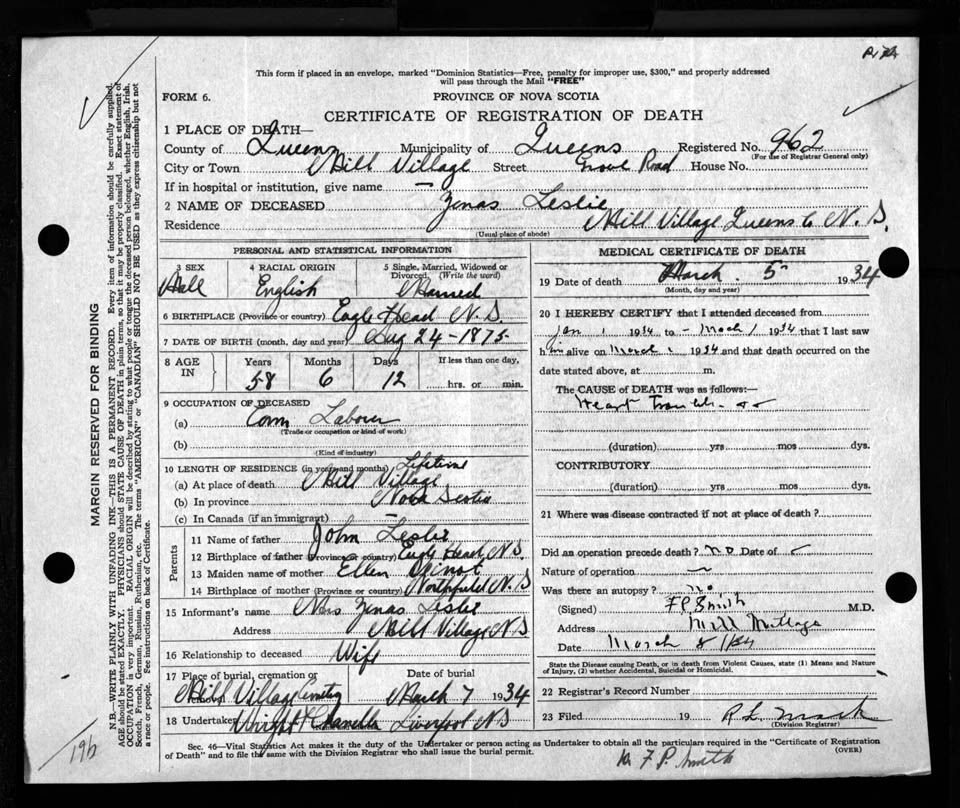 This form if placed in an envelope, marked "Dominion Statistics—Free, penalty for improper use, $300," and properly addressed
will pass through the Mail "FREE"
FORM 6.
PROVINCE OF NOVA SCOTIA
CERTIFICATE OF REGISTRATION OF DEATH
1 PLACE OF DEATH—
County of Queens Municipality of Queens Registered No. 962
(For use of Registrar General only)
City or Town Mill Village Street Road House No.
If in hospital or institution, give name —
2 NAME OF DECEASED Zenas Leslie
Residence Mill Village Queens Co N. S.
(Usual place of abode)
PERSONAL AND STATISTICAL INFORMATION
3 SEX 4 RACIAL ORIGIN 5 Single, Married, Widowed or
Divorced. (Write the word)
Male English Married
6 BIRTHPLACE (Province or country) Eagle Head N. S.
7 DATE OF BIRTH (month, day and year) Aug 24 - 1875
8 AGE IN Years Months Days If less than one day,
58 6 12 hrs. or min.
9 OCCUPATION OF DECEASED
(a) Com Laborer
(Trade or occupation or kind of work)
(b)
(Kind of industry)
10 LENGTH OF RESIDENCE (in years and months) Lifetime
(a) At place of death Mill Village
(b) In province Nova Scotia
(c) In Canada (if an immigrant) —
Parents
11 Name of father John Leslie
12 Birthplace of father (Province or country) Eagle Head N.S.
13 Maiden name of mother Ellen
14 Birthplace of mother (Province or country) Northfield N.S
15 Informant's name Mrs Zenas Leslie
Address Mill Village N S
16 Relationship to deceased Wife
17 Place of burial, cremation or removal Date of burial
Mill Village Cemetery March 7 1934
18 Undertaker Wright Liverpool N S
(Name and address)
MEDICAL CERTIFICATE OF DEATH
19 Date of death March 5 1934
(Month, day and year)
20 I HEREBY CERTIFY that I attended deceased from
Jan 1 1934 to March 1 1934 that I last saw
him alive on March 1 1934 and that death occurred on the
date stated above, at m.
The CAUSE of DEATH was as follows:—
Heart Trouble
(duration) yrs mos dys.
CONTRIBUTORY
(duration) yrs mos dys.
21 Where was disease contracted if not at place of death?
Did an operation precede death? no Date of
Nature of operation
Was there an autopsy? no
(Signed) F P Smith M.D.
Address Mill Village
Date March 8 /34
State the Disease causing Death, or in death from Violent Causes, state (1) Means and Nature
of Injury, (2) whether Accidental, Suicidal or Homicidal.
22 Registrar's Record Number
23 Filed 19 R L Mack
(Division Registrar)
Sec. 46—Vital Statistics Act makes it the duty of the Undertaker or person acting as Undertaker to obtain all the particulars required in the "Certificate of Registration
of Death" and to file the same with the Division Registrar who shall issue the burial permit.
(OVER)
Dr F. P. Smith
MARGIN RESERVED FOR BINDING
N.B.—WRITE PLAINLY WITH UNFADING INK—THIS IS A PERMANENT RECORD. Every item of information should be carefully supplied.
AGE should be stated EXACTLY. PHYSICIANS should STATE CAUSE OF DEATH in plain terms, so that it may be properly classified. Exact statement of
OCCUPATION is very important. RACIAL ORIGIN will be described by stating to what people or tongue the deceased person belonged, whether English, Irish,
Scotch, French, German, Russian, Ruthenian, etc. The terms "AMERICAN" or "CANADIAN" SHOULD NOT BE USED as they express citizenship but not
a race or people. See instructions on back of Certificate.